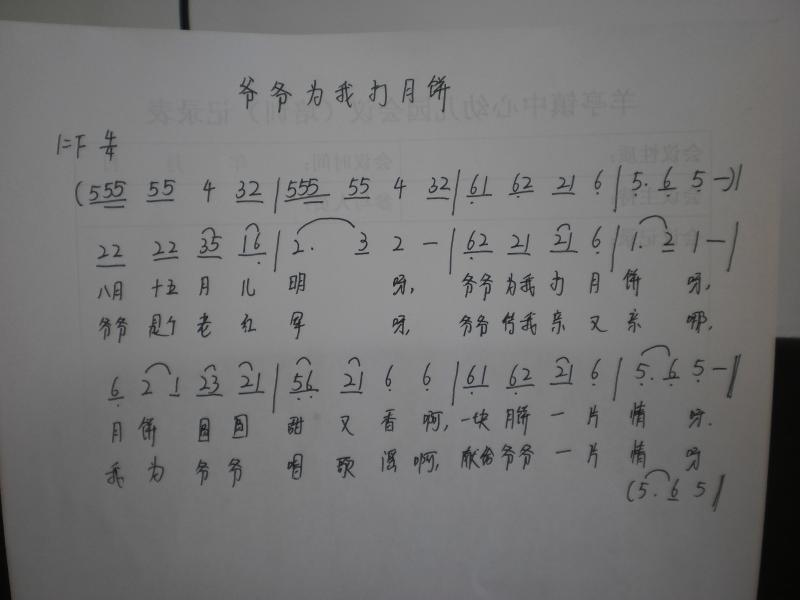 爷爷为我打月饼
1=F 4/4
(555 55 4 32 | 555 55 4 32 | 61 62 21 6 | 5. 6 5 -) |
22 22 35 16 | 2. 3 2 - | 62 21 21 6 | 1. 2 1 - |
八月 十五 月 儿 明 呀, 爷爷 为我 打 月 饼 呀,
爷爷 是个 老 红 军 呀, 爷爷 待我 亲 又 亲 哪,
6 2 1 23 21 | 56 21 6 6 | 61 62 21 6 | 5. 6 5 - ‖
月 饼 圆 圆 甜 又 香 啊, 一块 月饼 一 片 情 呀.
我 为 爷 爷 唱 歌 谣 啊, 献给 爷爷 一 片 情 呀
(5. 6 5 ‖
羊亭镇中心幼儿园会议（培训）记录表
会议性质：
会议时间： 年 月
会议主持：
会议记录：